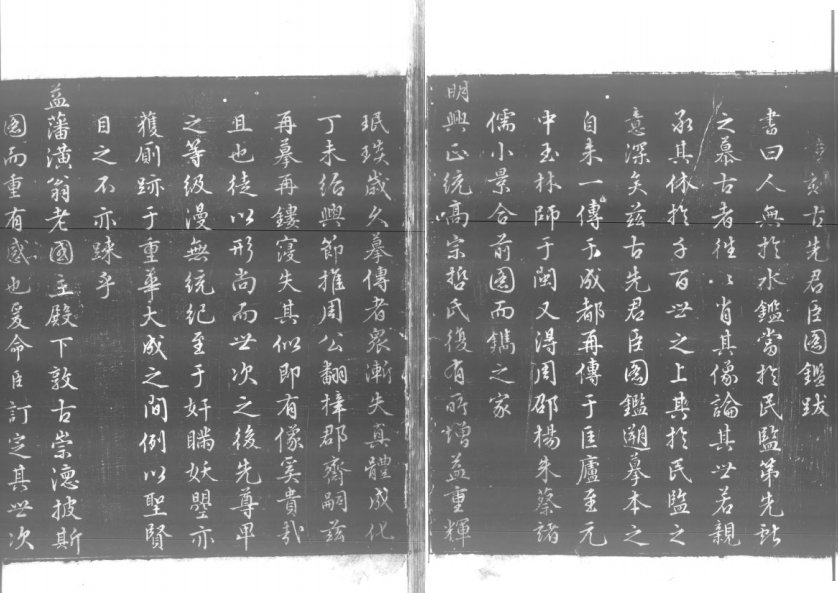 古先君臣圖鑑跋
書曰人無於水鑑當於民監第先哲
之慕古者徃〻肖其像論其世若親
承其休於千百世之上與於民監之
意深矣茲古先君臣圖鑑遡摹本之
自来一傳于成都再傳于匡廬至元
中玉林師于閩又得周邵楊朱蔡諸
儒小景合前圖而鐫之家
明興正統高宗哲氏復有所增益重輝
珉琰歲久摹傳者衆漸失真體成化
丁未紹興節推周公翻梓郡齋嗣茲
再摹再鏤寖失其似即有像奚貴哉
且也徒以形尚而世次之後先尊卑
之等級漫無統紀至于奸瞞妖曌亦
獲廁跡于重華大成之間例以聖賢
目之不亦踈乎
益藩潢翁老國主殿下敦古崇德披斯
圖而重有感也爰命臣訂定其世次